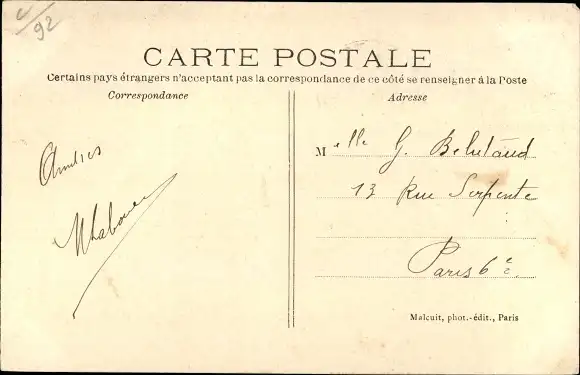 c/92
CARTE POSTALE
Certains pays étrangers n'acceptant pas la correspondance de ce côté se renseigner à la Poste
Correspondance
Adresse
Amitiés
Mlle G.
13 Rue Serpente
Paris 6e
Malcuit, phot.-édit., Paris